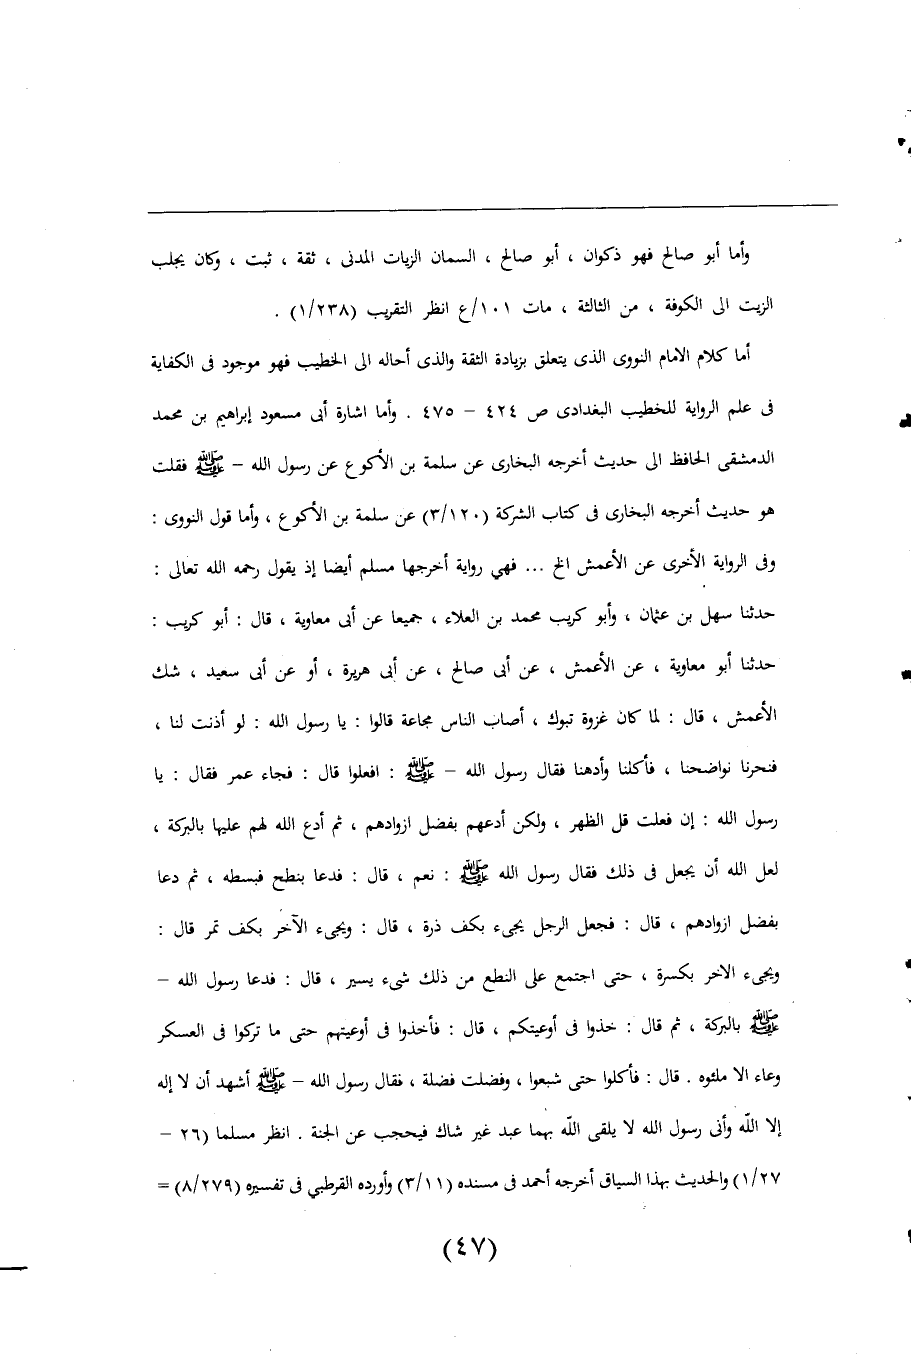 وأما أبو صالح فهو ذكوان ، أبو صالح ، السمان الزيات المدنى ، ثقة ، ثبت ، وكان يجلب
الزيت الى الكوفة ، من الثالثة ، مات ١٠١/ع انظر التقريب (١/٢٣٨) .
أما كلام الامام النووى الذى يتعلق بزيادة الثقة والذى أحاله الى الخطيب فهو موجود فى الكفاية
فى علم الرواية للخطيب البغدادى ص ٤٢٤ – ٤٧٥ . وأما اشارة أبى مسعود إبراهيم بن محمد
الدمشقى الحافظ الى حديث أخرجه البخارى عن سلمة بن الأكوع عن رسول الله – ﷺ فقلت
هو حديث أخرجه البخارى فى كتاب الشركة (٣/١٢٠) عن سلمة بن الأكوع ، وأما قول النووى :
وفى الرواية الأخرى عن الأعمش الخ ... فهي رواية أخرجها مسلم أيضا إذ يقول رحمه الله تعالى :
حدثنا سهل بن عثمان ، وأبو كريب محمد بن العلاء ، جميعا عن أبى معاوية ، قال : أبو كريب :
حدثنا أبو معاوية ، عن الأعمش ، عن أبى صالح ، عن أبى هريرة ، أو عن أبى سعيد ، شك
الأعمش ، قال : لما كان غزوة تبوك ، أصاب الناس مجاعة قالوا : يا رسول الله : لو أذنت لنا ،
فنحرنا نواضحنا ، فأكلنا وأدهنا فقال رسول الله – ﷺ : افعلوا قال : فجاء عمر فقال : يا
رسول الله : إن فعلت قل الظهر ، ولكن أدعهم بفضل ازوادهم ، ثم أدع الله لهم عليها بالبركة ،
لعل الله أن يجعل فى ذلك فقال رسول الله ﷺ : نعم ، قال : فدعا بنطح فبسطه ، ثم دعا
بفضل ازوادهم ، قال : فجعل الرجل يجىء بكف ذرة ، قال : ويجىء الآخر بكف تمر قال :
ويجىء الاخر بكسرة ، حتى اجتمع على النطع من ذلك شىء يسير ، قال : فدعا رسول الله –
ﷺ بالبركة ، ثم قال : خذوا فى أوعيتكم ، قال : فأخذوا فى أوعيتهم حتى ما تركوا فى العسكر
وعاء الا ملئوه . قال : فأكلوا حتى شبعوا ، وفضلت فضلة ، فقال رسول الله – ﷺ أشهد أن لا إله
إلا الله وأنى رسول الله لا يلقى الله بهما عبد غير شاك فيحجب عن الجنة . انظر مسلما (٢٦ –
١/٢٧) والحديث بهذا السياق أخرجه أحمد فى مسنده (٣/١١) وأورده القرطبي فى تفسيره (٨/٢٧٩) =
(٤٧)